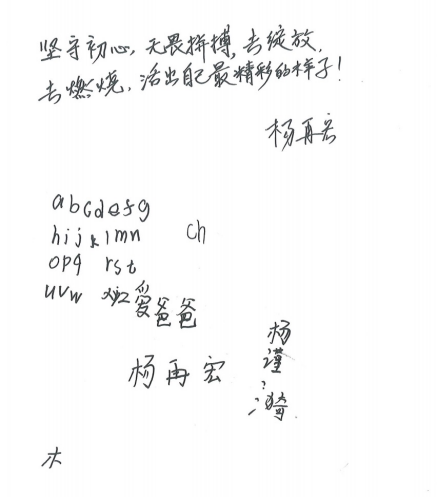 坚守初心，无畏拼搏，去绽放，
去燃烧，活出自己最精彩的样子！
杨再宏
abcdefg
hijklmn ch
opq rst
uvw xyz 爱爸爸
杨再宏
杨瑾
木